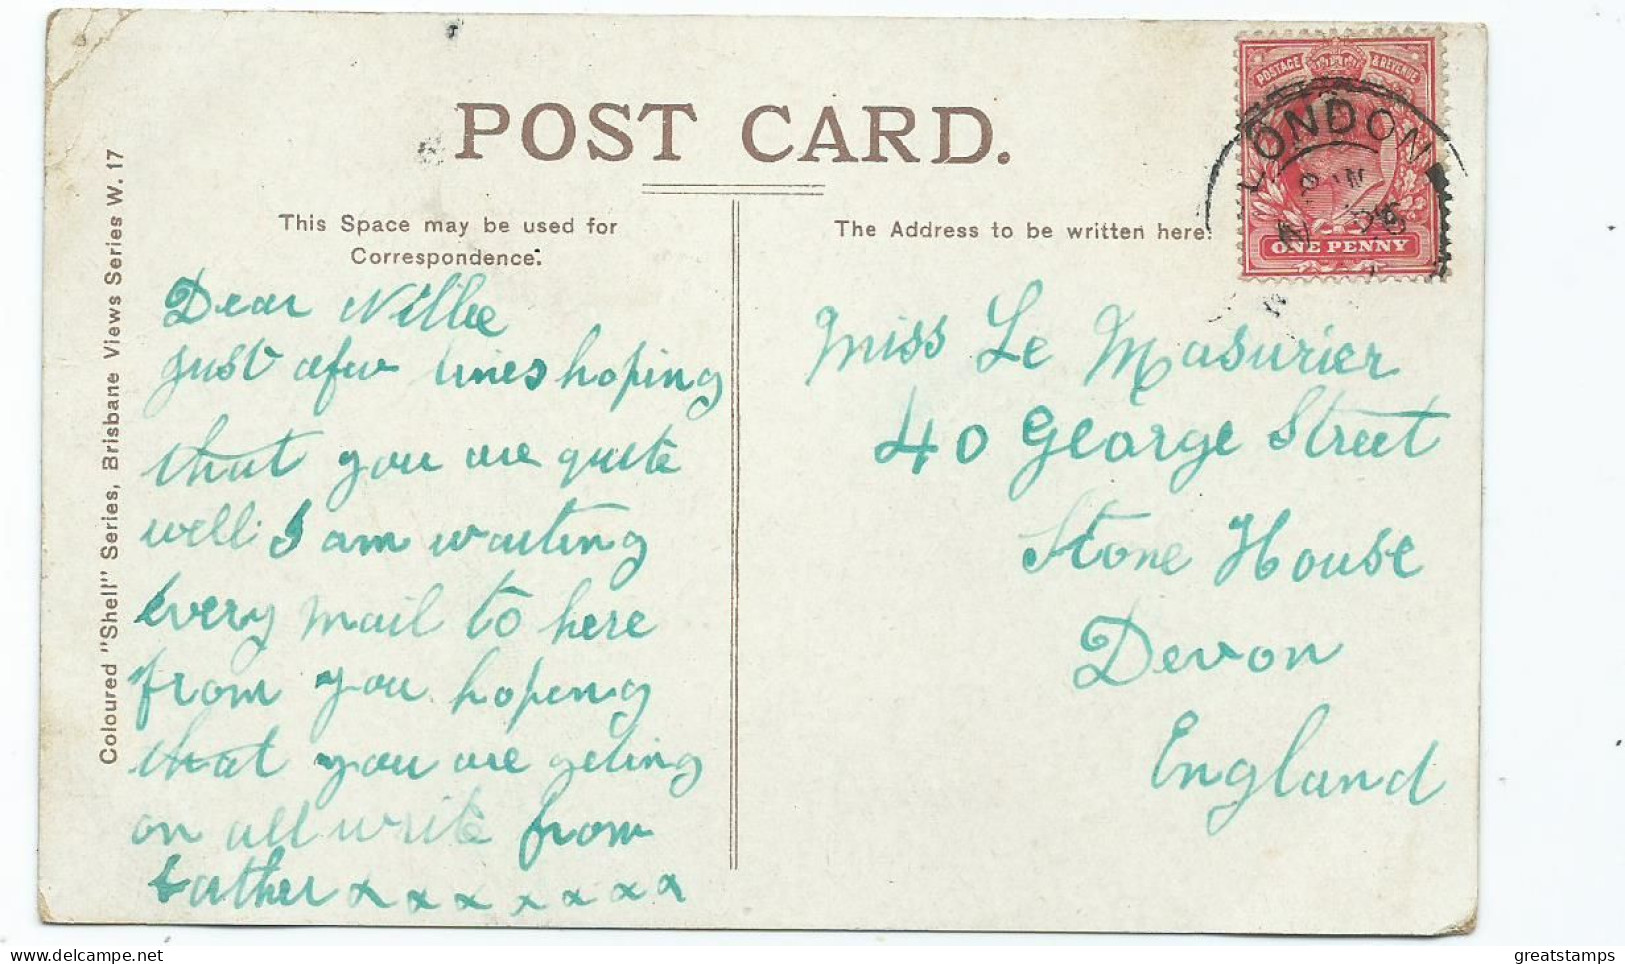 POST CARD.
This Space may be used for
Correspondence.
The Address to be written here.
Coloured "Shell" Series, Brisbane Views Series W. 17
POSTAGE & REVENUE
ONE PENNY
LONDON
Dear Nillie
just afew lines hoping
that you are quite
well I am waiting
every mail to here
from you hoping
that you are geting
on all write from
Father x x x x x x x
Miss Le Masurier
40 George Street
Stone House
Devon
England
greatstamps